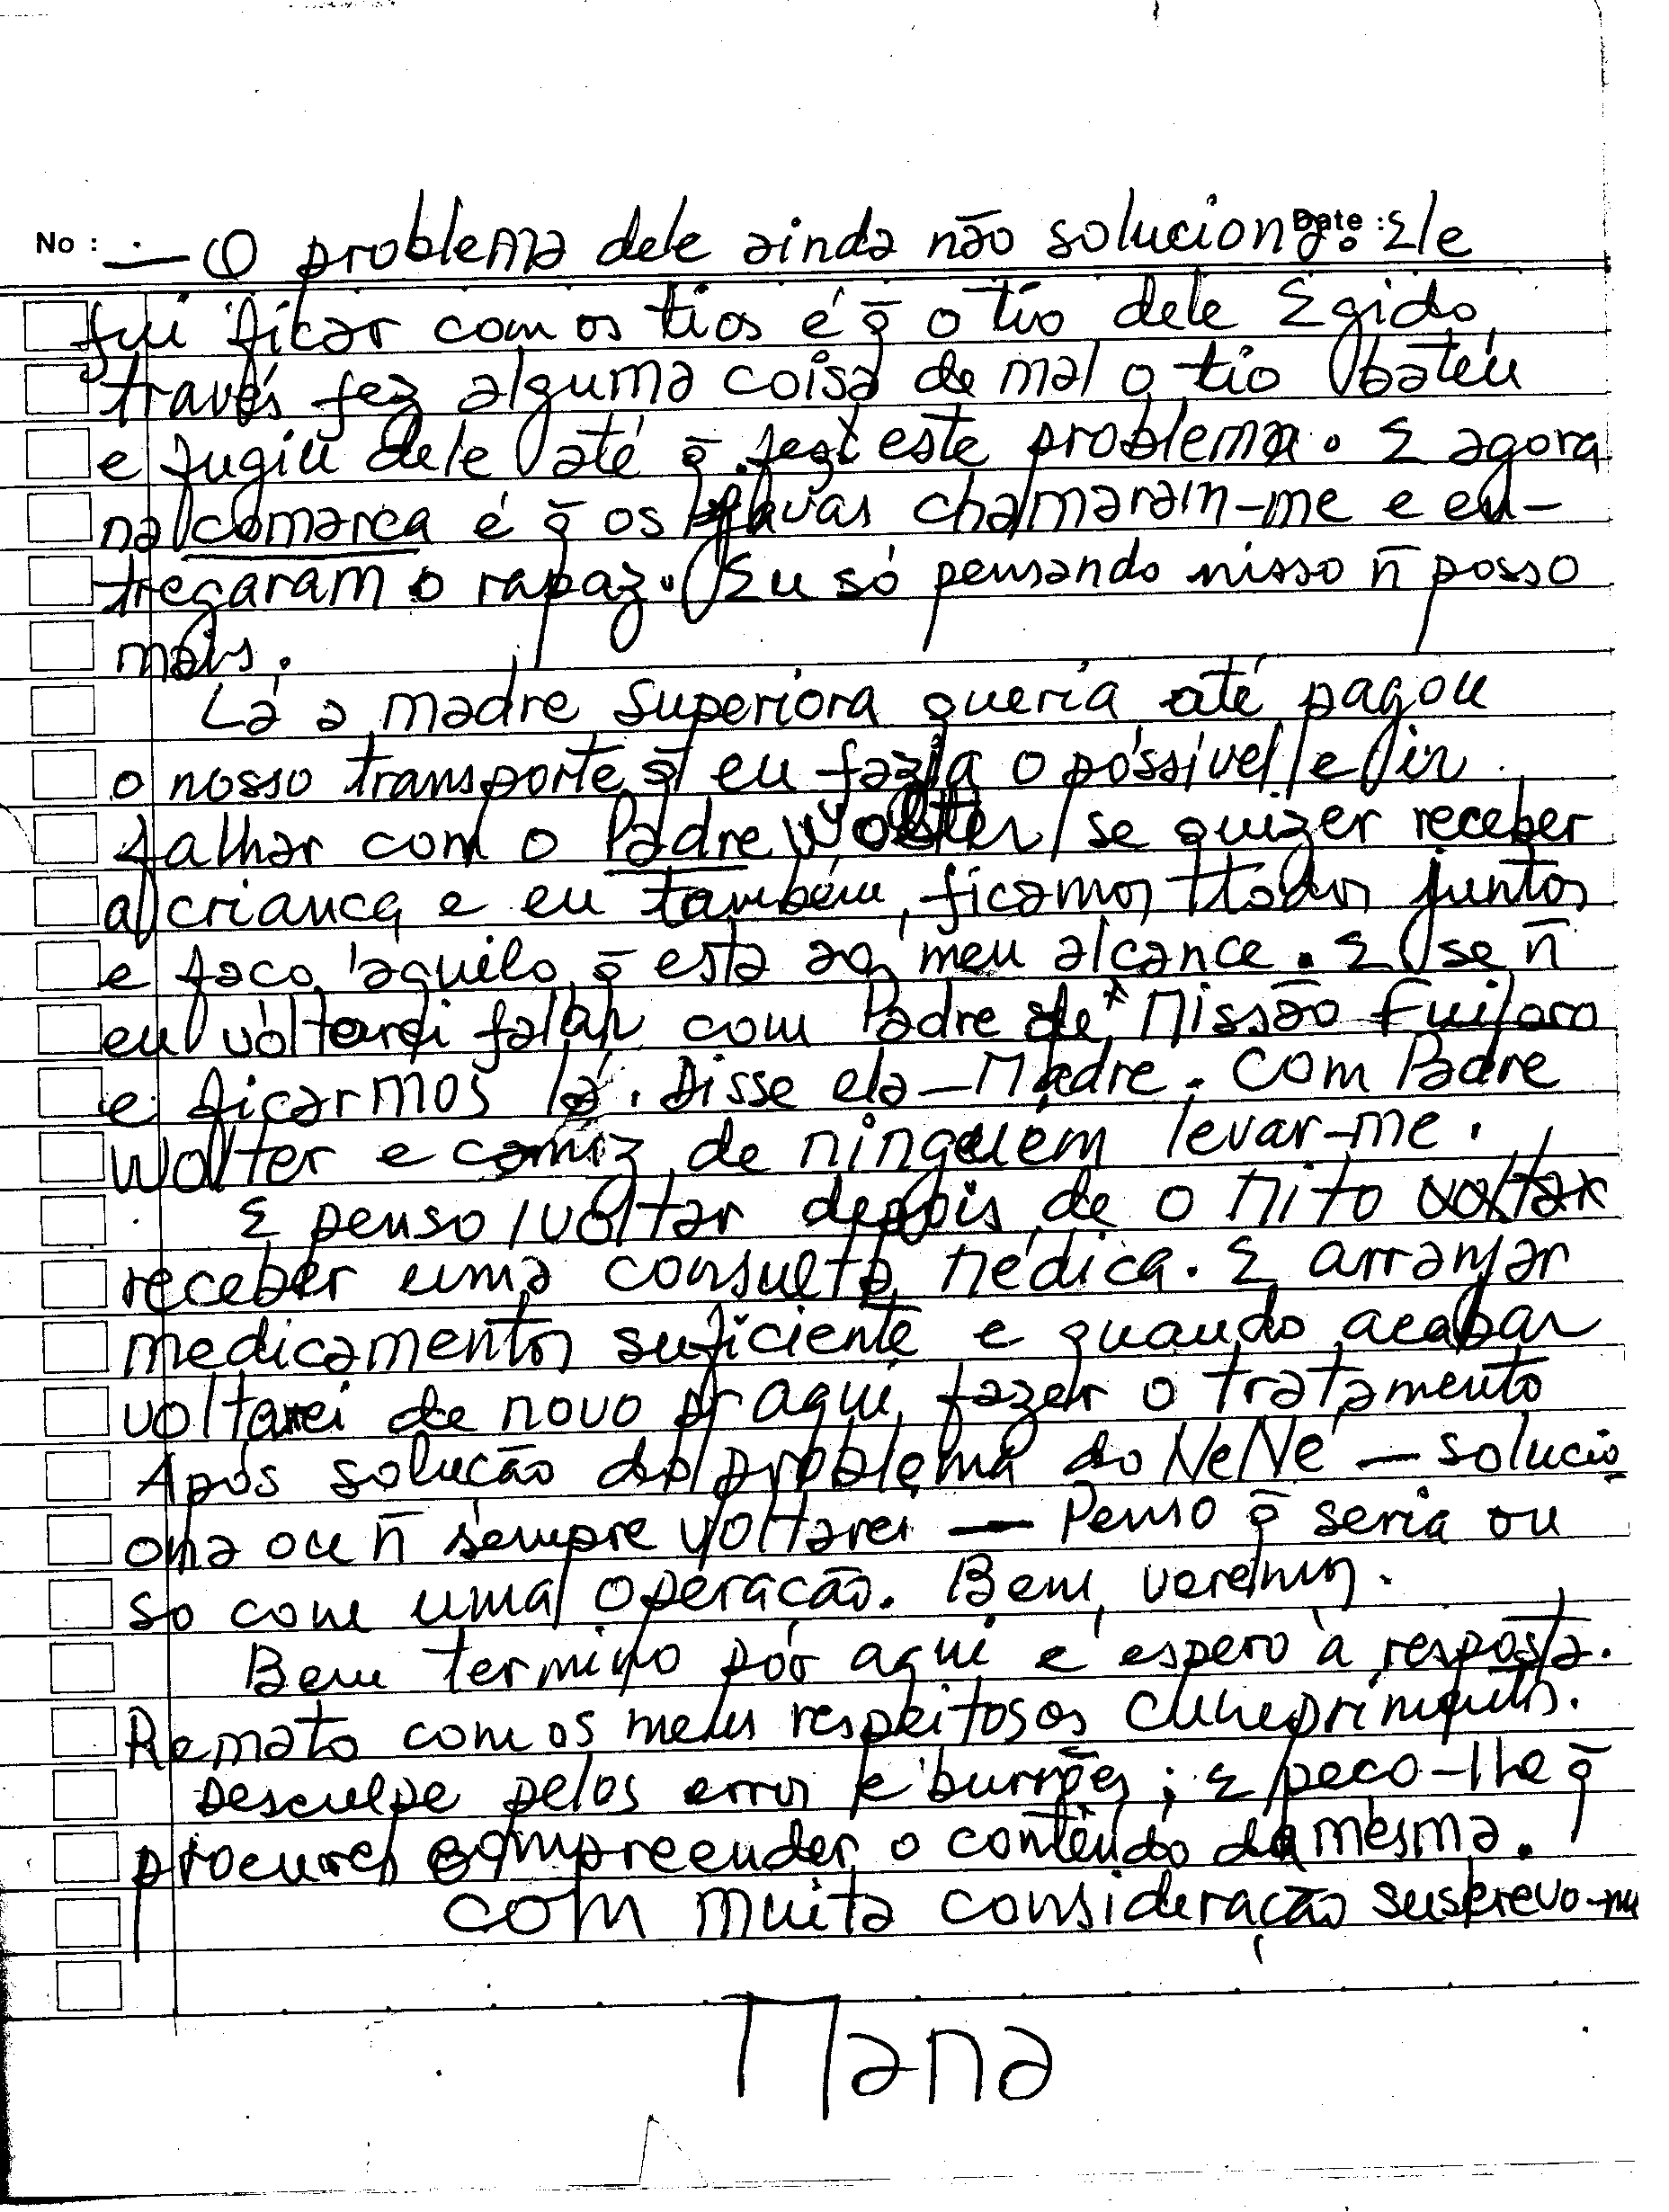 No : — O problema dele ainda não soluciona. Date : Ele
fui ficar com os tios é q̄ o tio dele Egido
través fez alguma coisa de mal o tio bateu
e fugiu dele até q̄ fez este problema. E agora
na comarca é q̄ os chamaram-me e en-
tregaram o rapaz. Eu só pensando nisso ñ posso
mais.
Lá a madre Superiora queria até pagou
o nosso transporte q̄ eu fazia o póssivel e ir
falhar com o Padre Wolter se quizer receber
a criança e eu também, ficamos todos juntos
e faco aquilo q̄ está ao meu alcance. E se ñ
eu voltarei falar com Padre de Missão Fuiloro
e ficarmos lá. Disse ela - Madre. Com Padre
Wolter e de ninguém levar-me.
E penso voltar depois de o Mito voltar
receber uma consulta Médica. E arranjar
medicamentos suficiente e quando acabar
voltarei de novo pr aqui fazer o tratamento
Após solução do problema do NeNé — solucio
ona ou ñ sempre voltarei — Penso q̄ seria ou
so com uma operacão. Bem, veremos.
Bem termino pór aqui e espero a resposta.
Remato com os meus respeitosos cumprimentos.
Desculpe pelos erros e burrões; E peco-lhe q̄
procures compreender o conteúdo da mesma.
Com muita consideração suscrevo-me
Mana